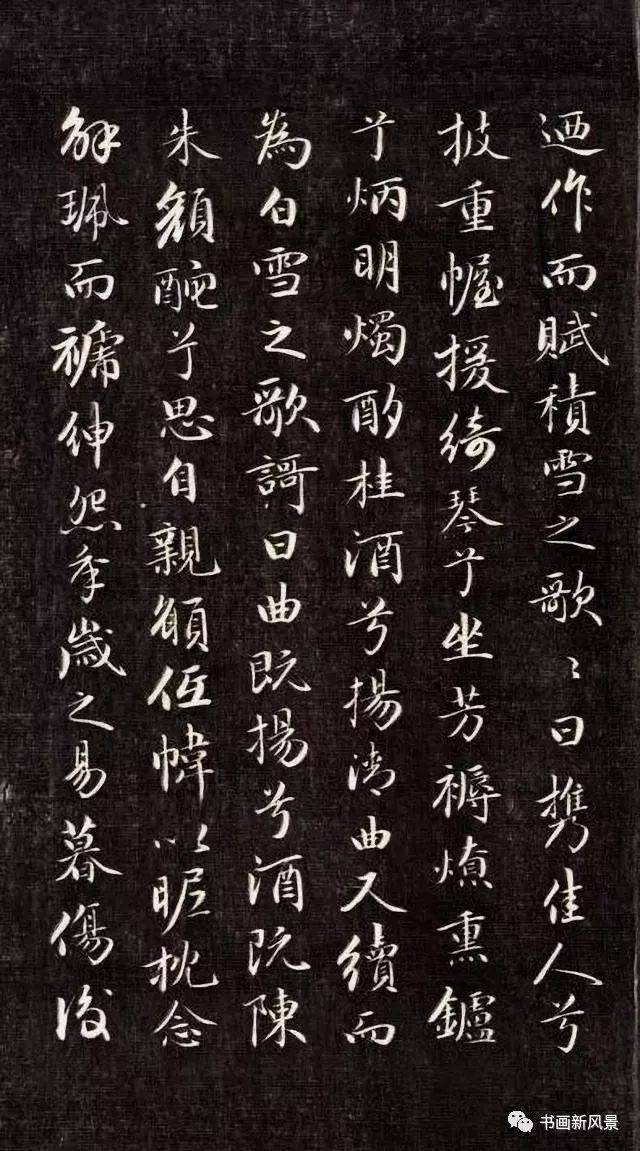 迺作而賦積雪之歌〻曰携佳人兮
披重幄援綺琴兮坐芳褥燎熏鑪
兮炳明燭酌桂酒兮揚清曲又續而
為白雪之歌謌曰曲既揚兮酒既陳
朱顏酡兮思自親願伍幃以昵枕念
解珮而襦紳怨年歲之易暮傷後
书画新风景